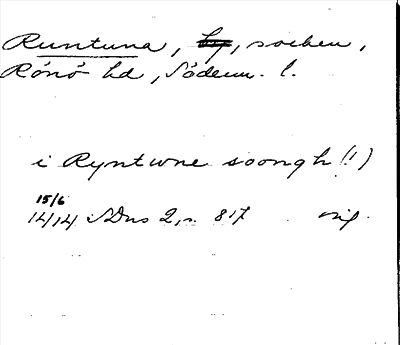 Runtuna, by, socken,
Rönö hd, Söderm. l.
i Ryntwne soongh (!)
15/6
1414 SDns 2, s. 817 orig.